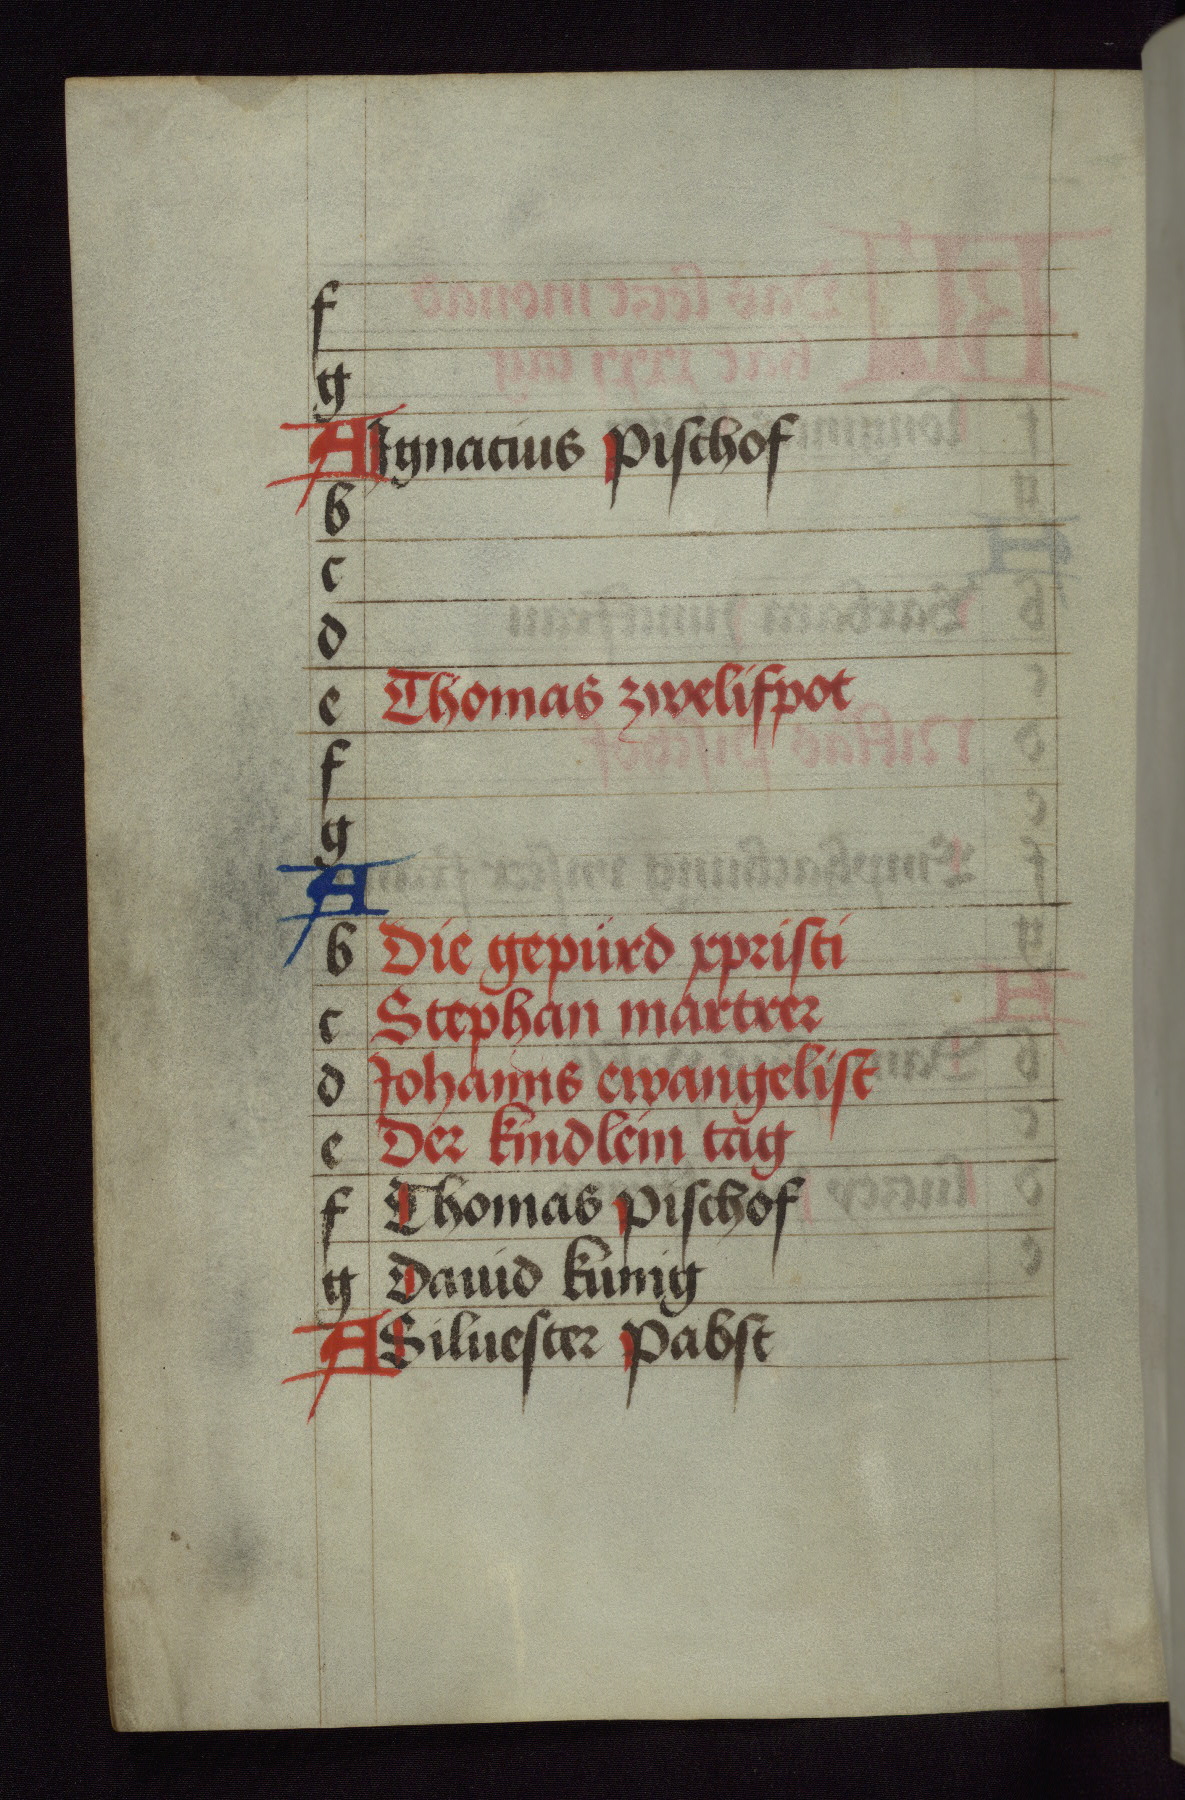 f
g
A Ignacius Pischof
b
c
d
e Thomas zwelifpot
f
g
A
b Die gepürd xpristi
c Stephan martrer
d Johanns ewangelist
e Der kindlein tag
f Thomas pischof
g Dauid künig
A Siluester Pabst